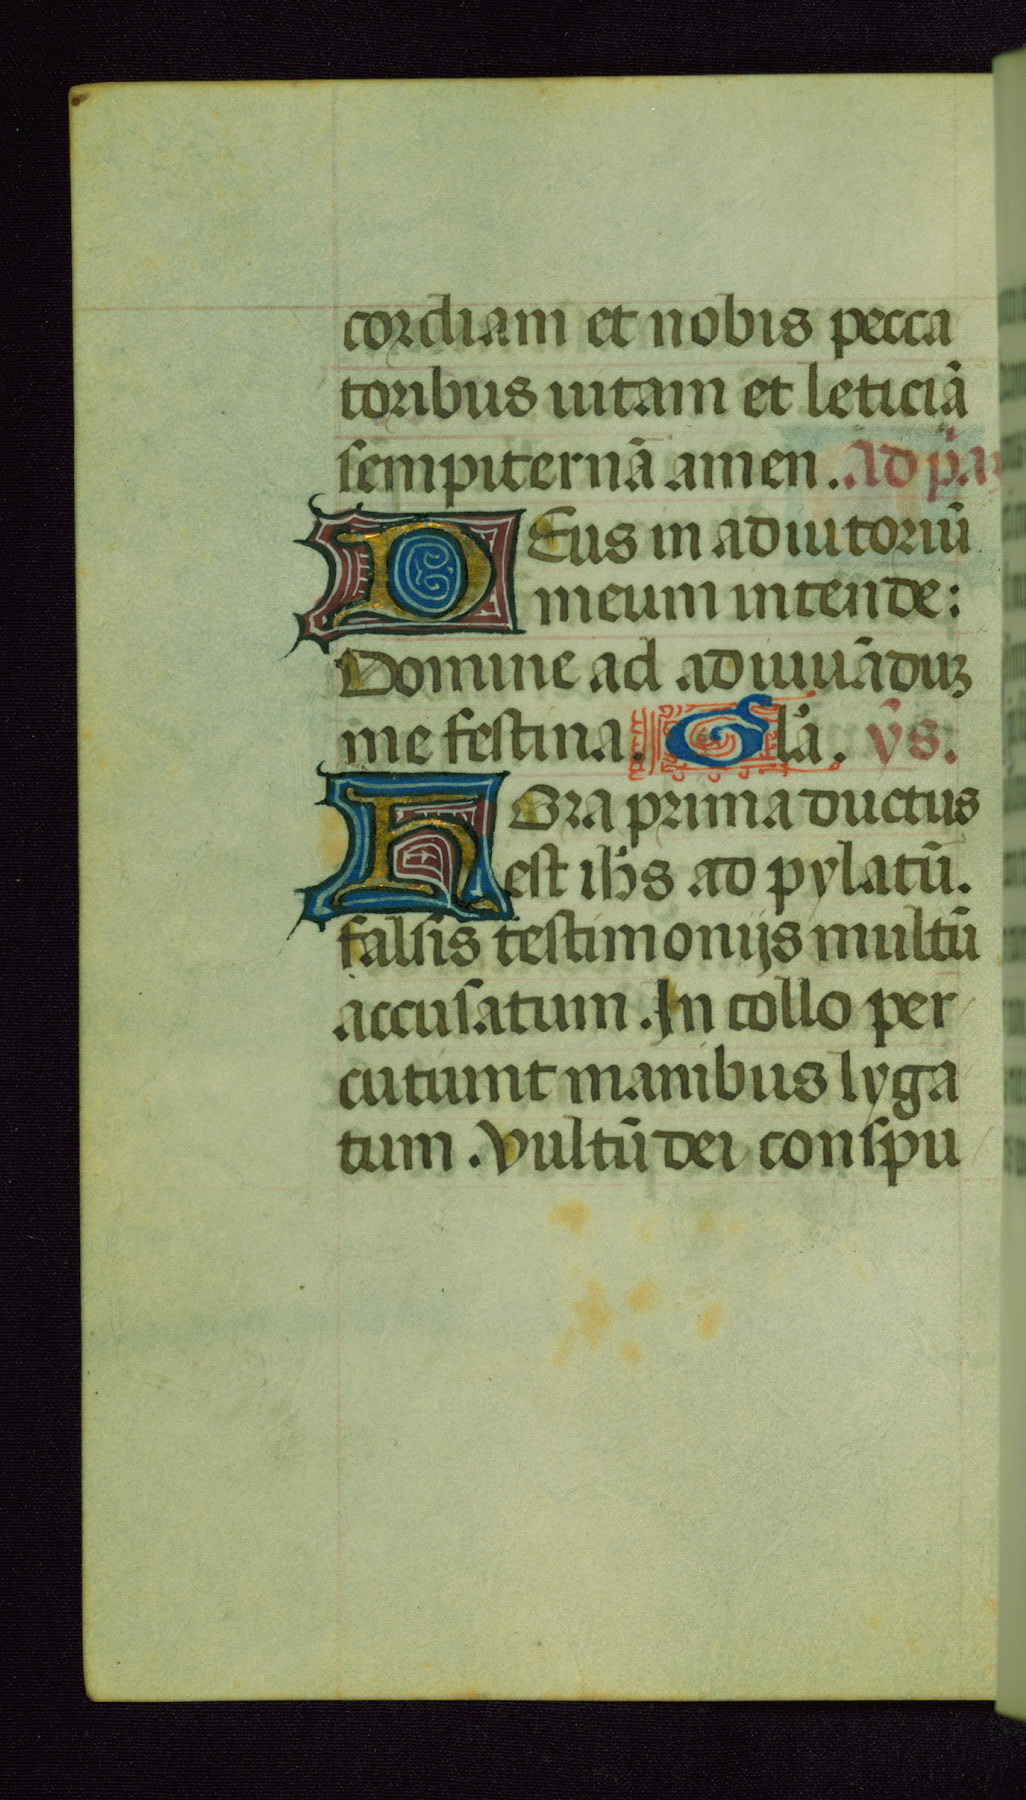 cordiam et nobis pecca
toribus uitam et leticiā
sempiternā amen. Ad p̄a
DEus in adiutoriū
meum intende:
Domine ad adiuuāduȝ
me festina. Gl̄a. v̄s.
HOra prima ductus
est ih̄s ad pylatū.
falsis testimonijs multū
accusatum. In collo per
cutiunt manibus lyga
tum. Vultū dei conspu